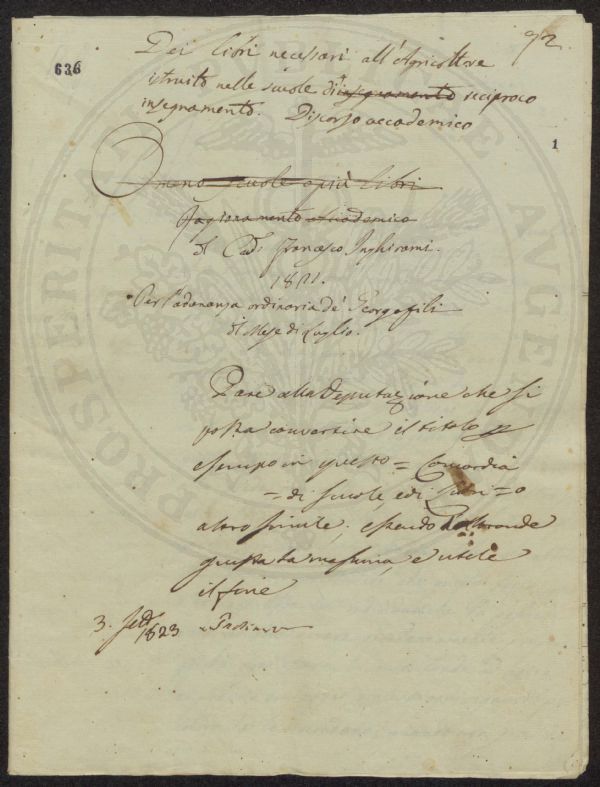 92.
636
Dei libri necessari all'Agricoltore
istruito nelle scuole di insegnamento reciproco
insegnamento. Discorso accademico
1
O meno scuole o più libri
Ragionamento accademico
di Francesco Inghirami.
18
Per l'adunanza ordinaria de' Georgofili
di Mese di Luglio.
Pare alla Deputazione che si
possa convertire il titolo
esempio in questo = Concordia
= di scuole, e di libri = o
altro simile; essendo altronde
giusta la massima, e utile
il fine
3. 1823
PROSPERITATI AUGENDAE